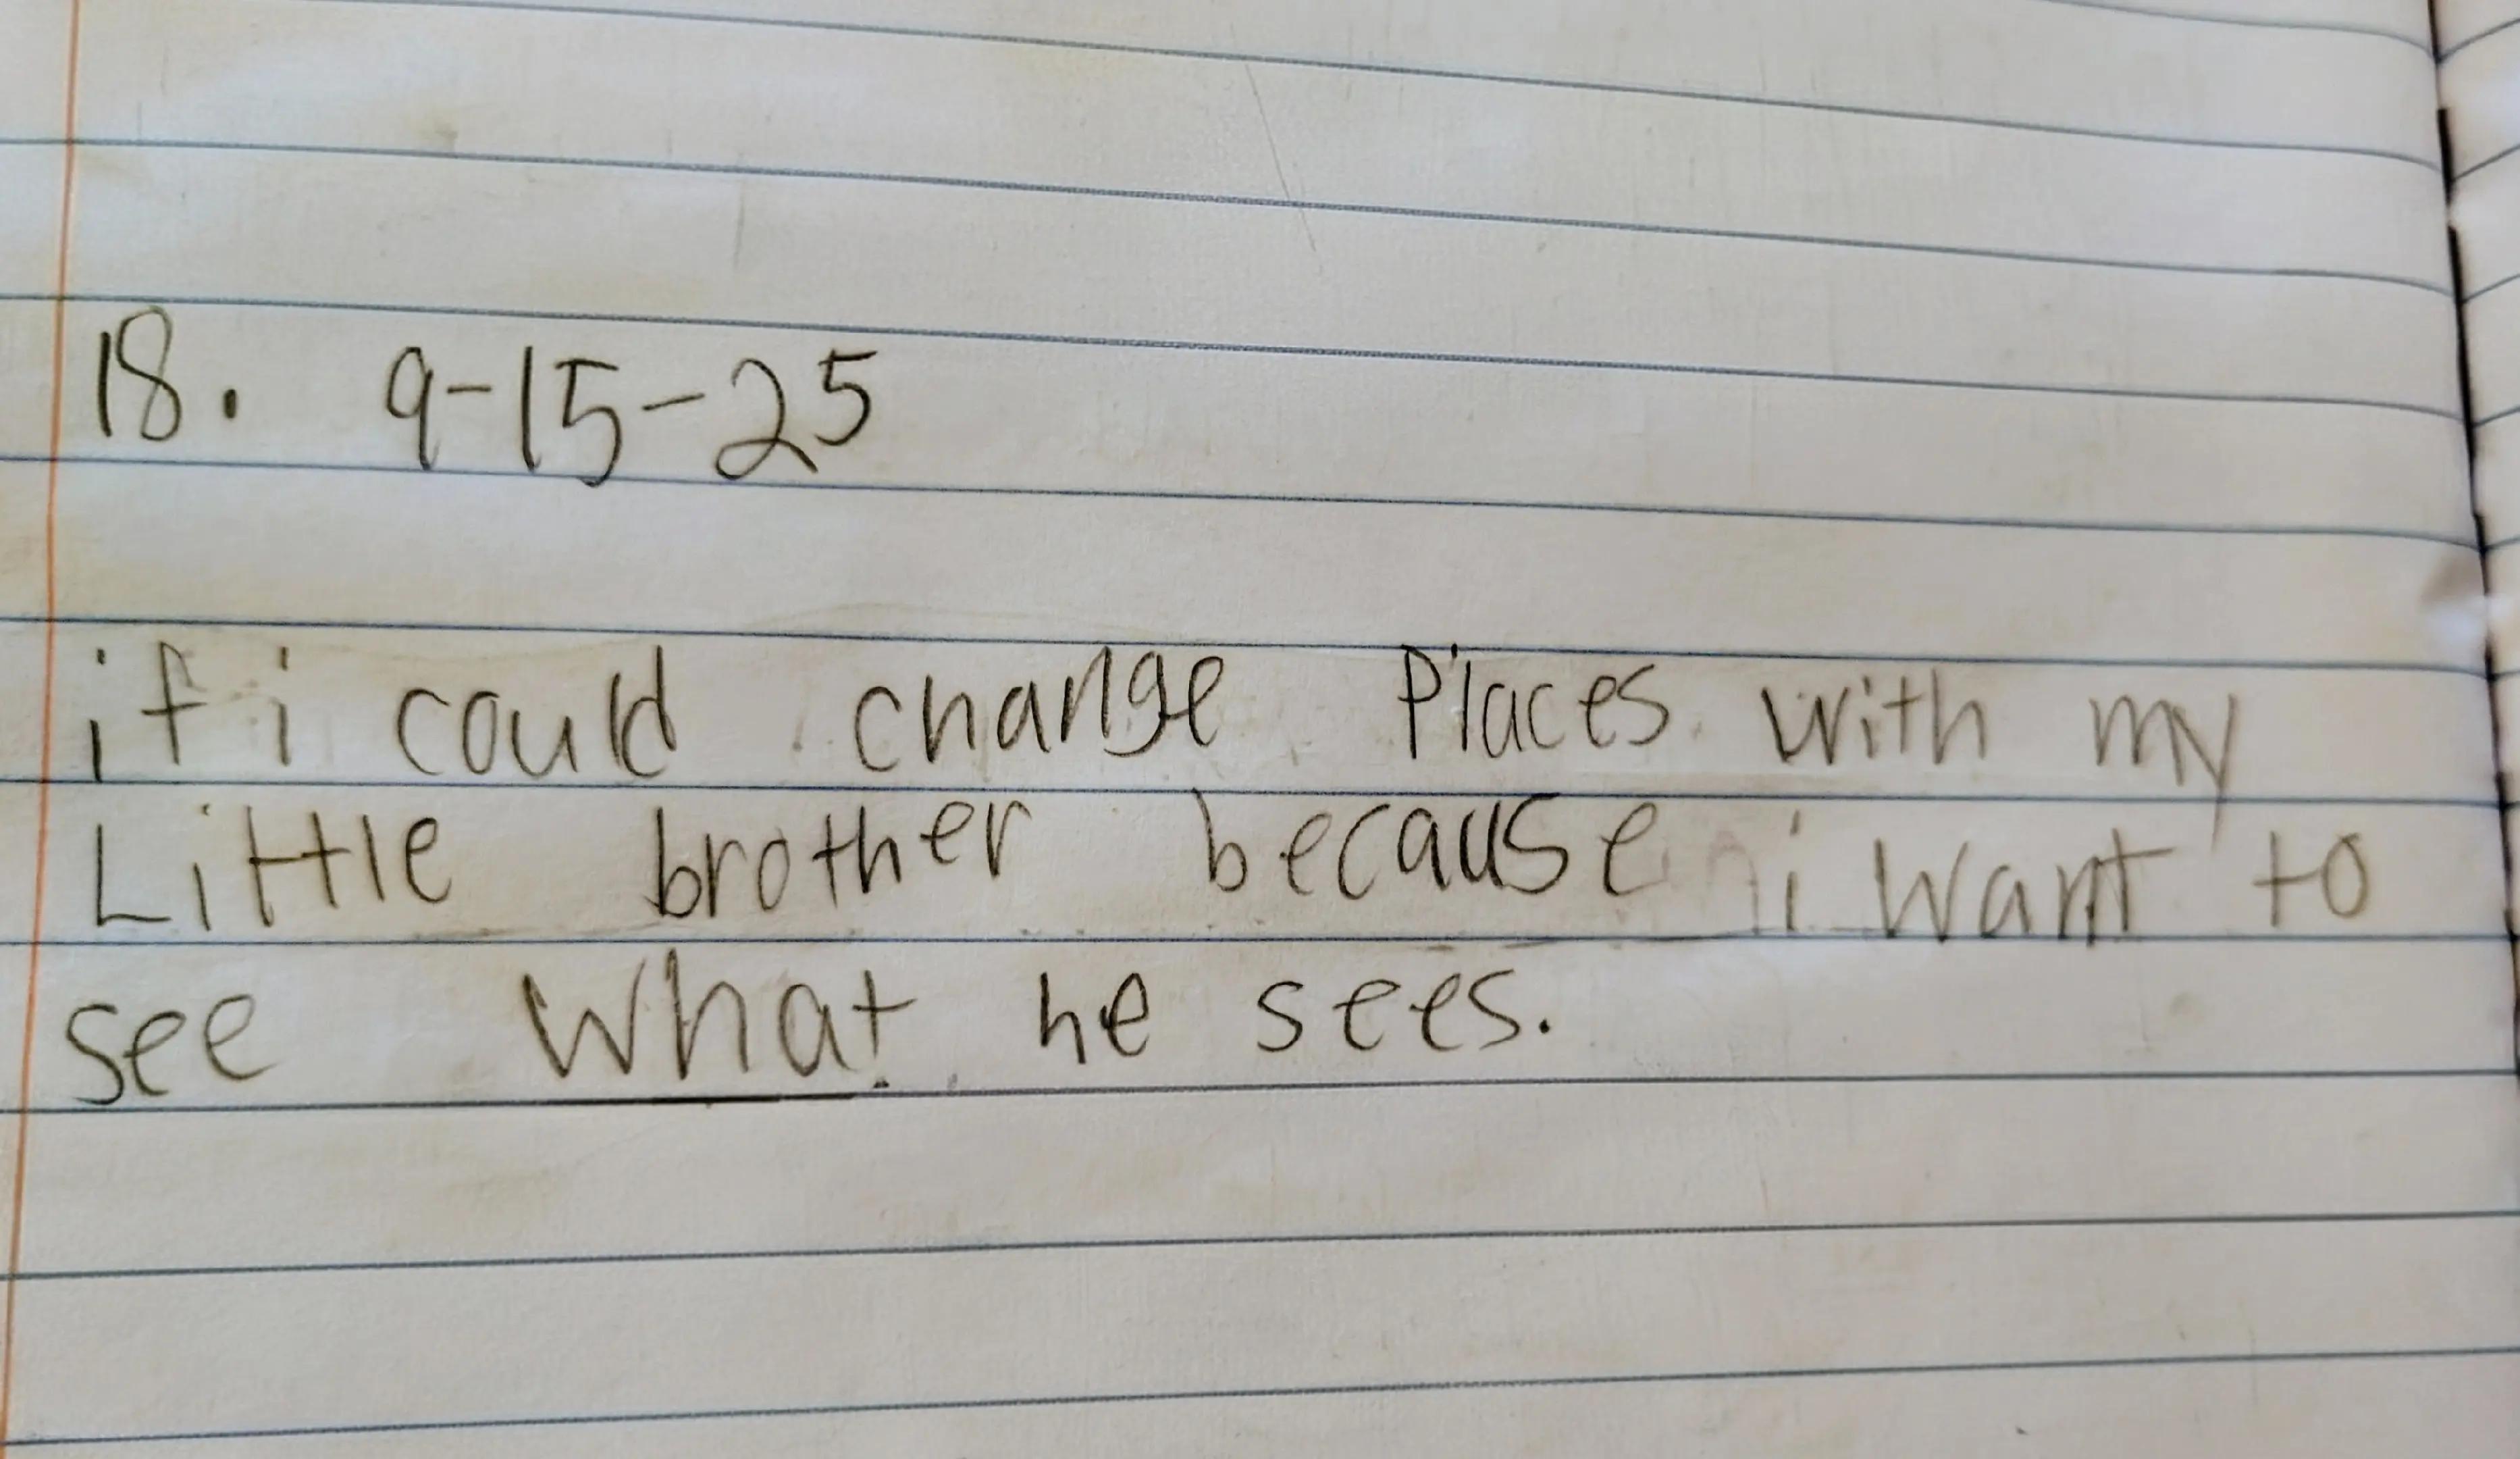 18. 9-15-25
if i could change Places with my
Little brother because i want to
see what he sees.